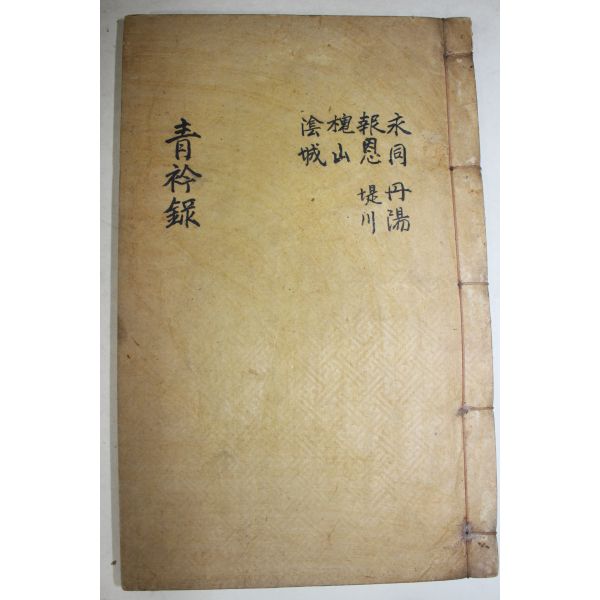 永同 丹陽
報恩 堤川
槐山
陰城
青衿錄